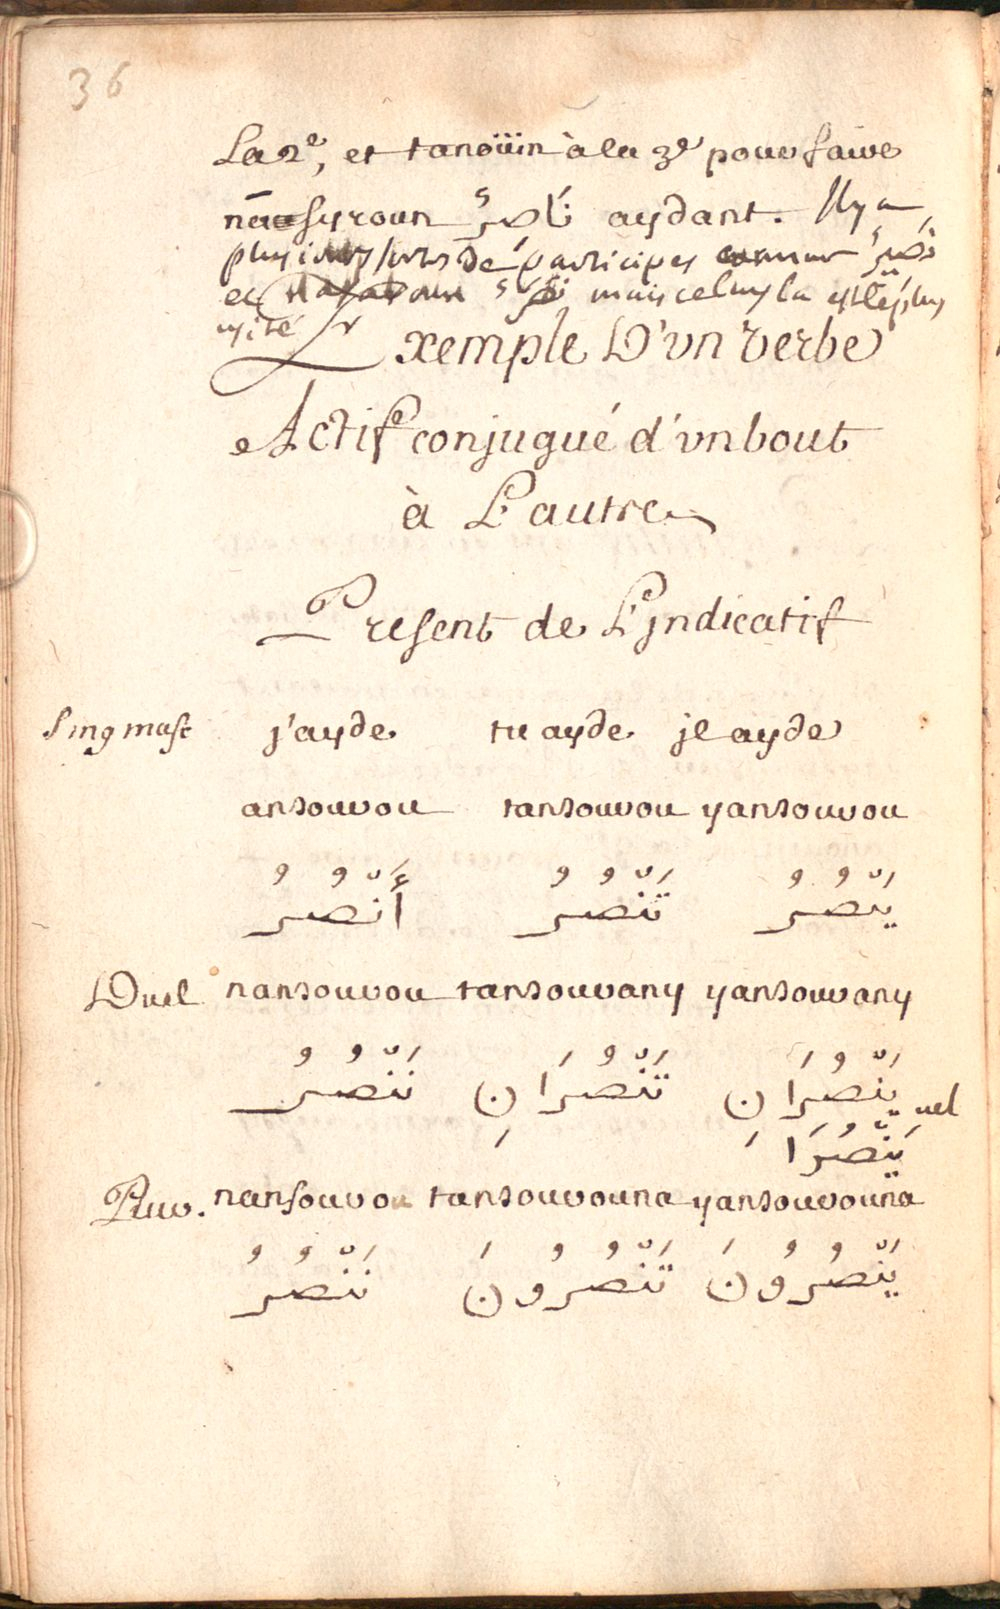 36
La 2e, et tanoüin à la 3e pour faire
nasyroun نَاصِرٌ aydant. Il y a
plusieurs sortes de participes comme نَصِيرٌ
et mais celuy la est le plus
usité
Exemple D'un Verbe
Actif conjugué d'un bout
à L'autre
Present de L'jndicatif
Sing masc j'ayde tu ayde jl ayde
ansourou tansourou yansourou
أَنْصُرُ تَنْصُرُ يَنْصُرُ
Duel nansourou tansourany yansourany
نَنْصُرُ تَنْصُرَانِ يَنْصُرَانِ uel
يَنْصُرَا
Plur. nansourou tansourouna yansourouna
نَنْصُرُ تَنْصُرُونَ يَنْصُرُونَ